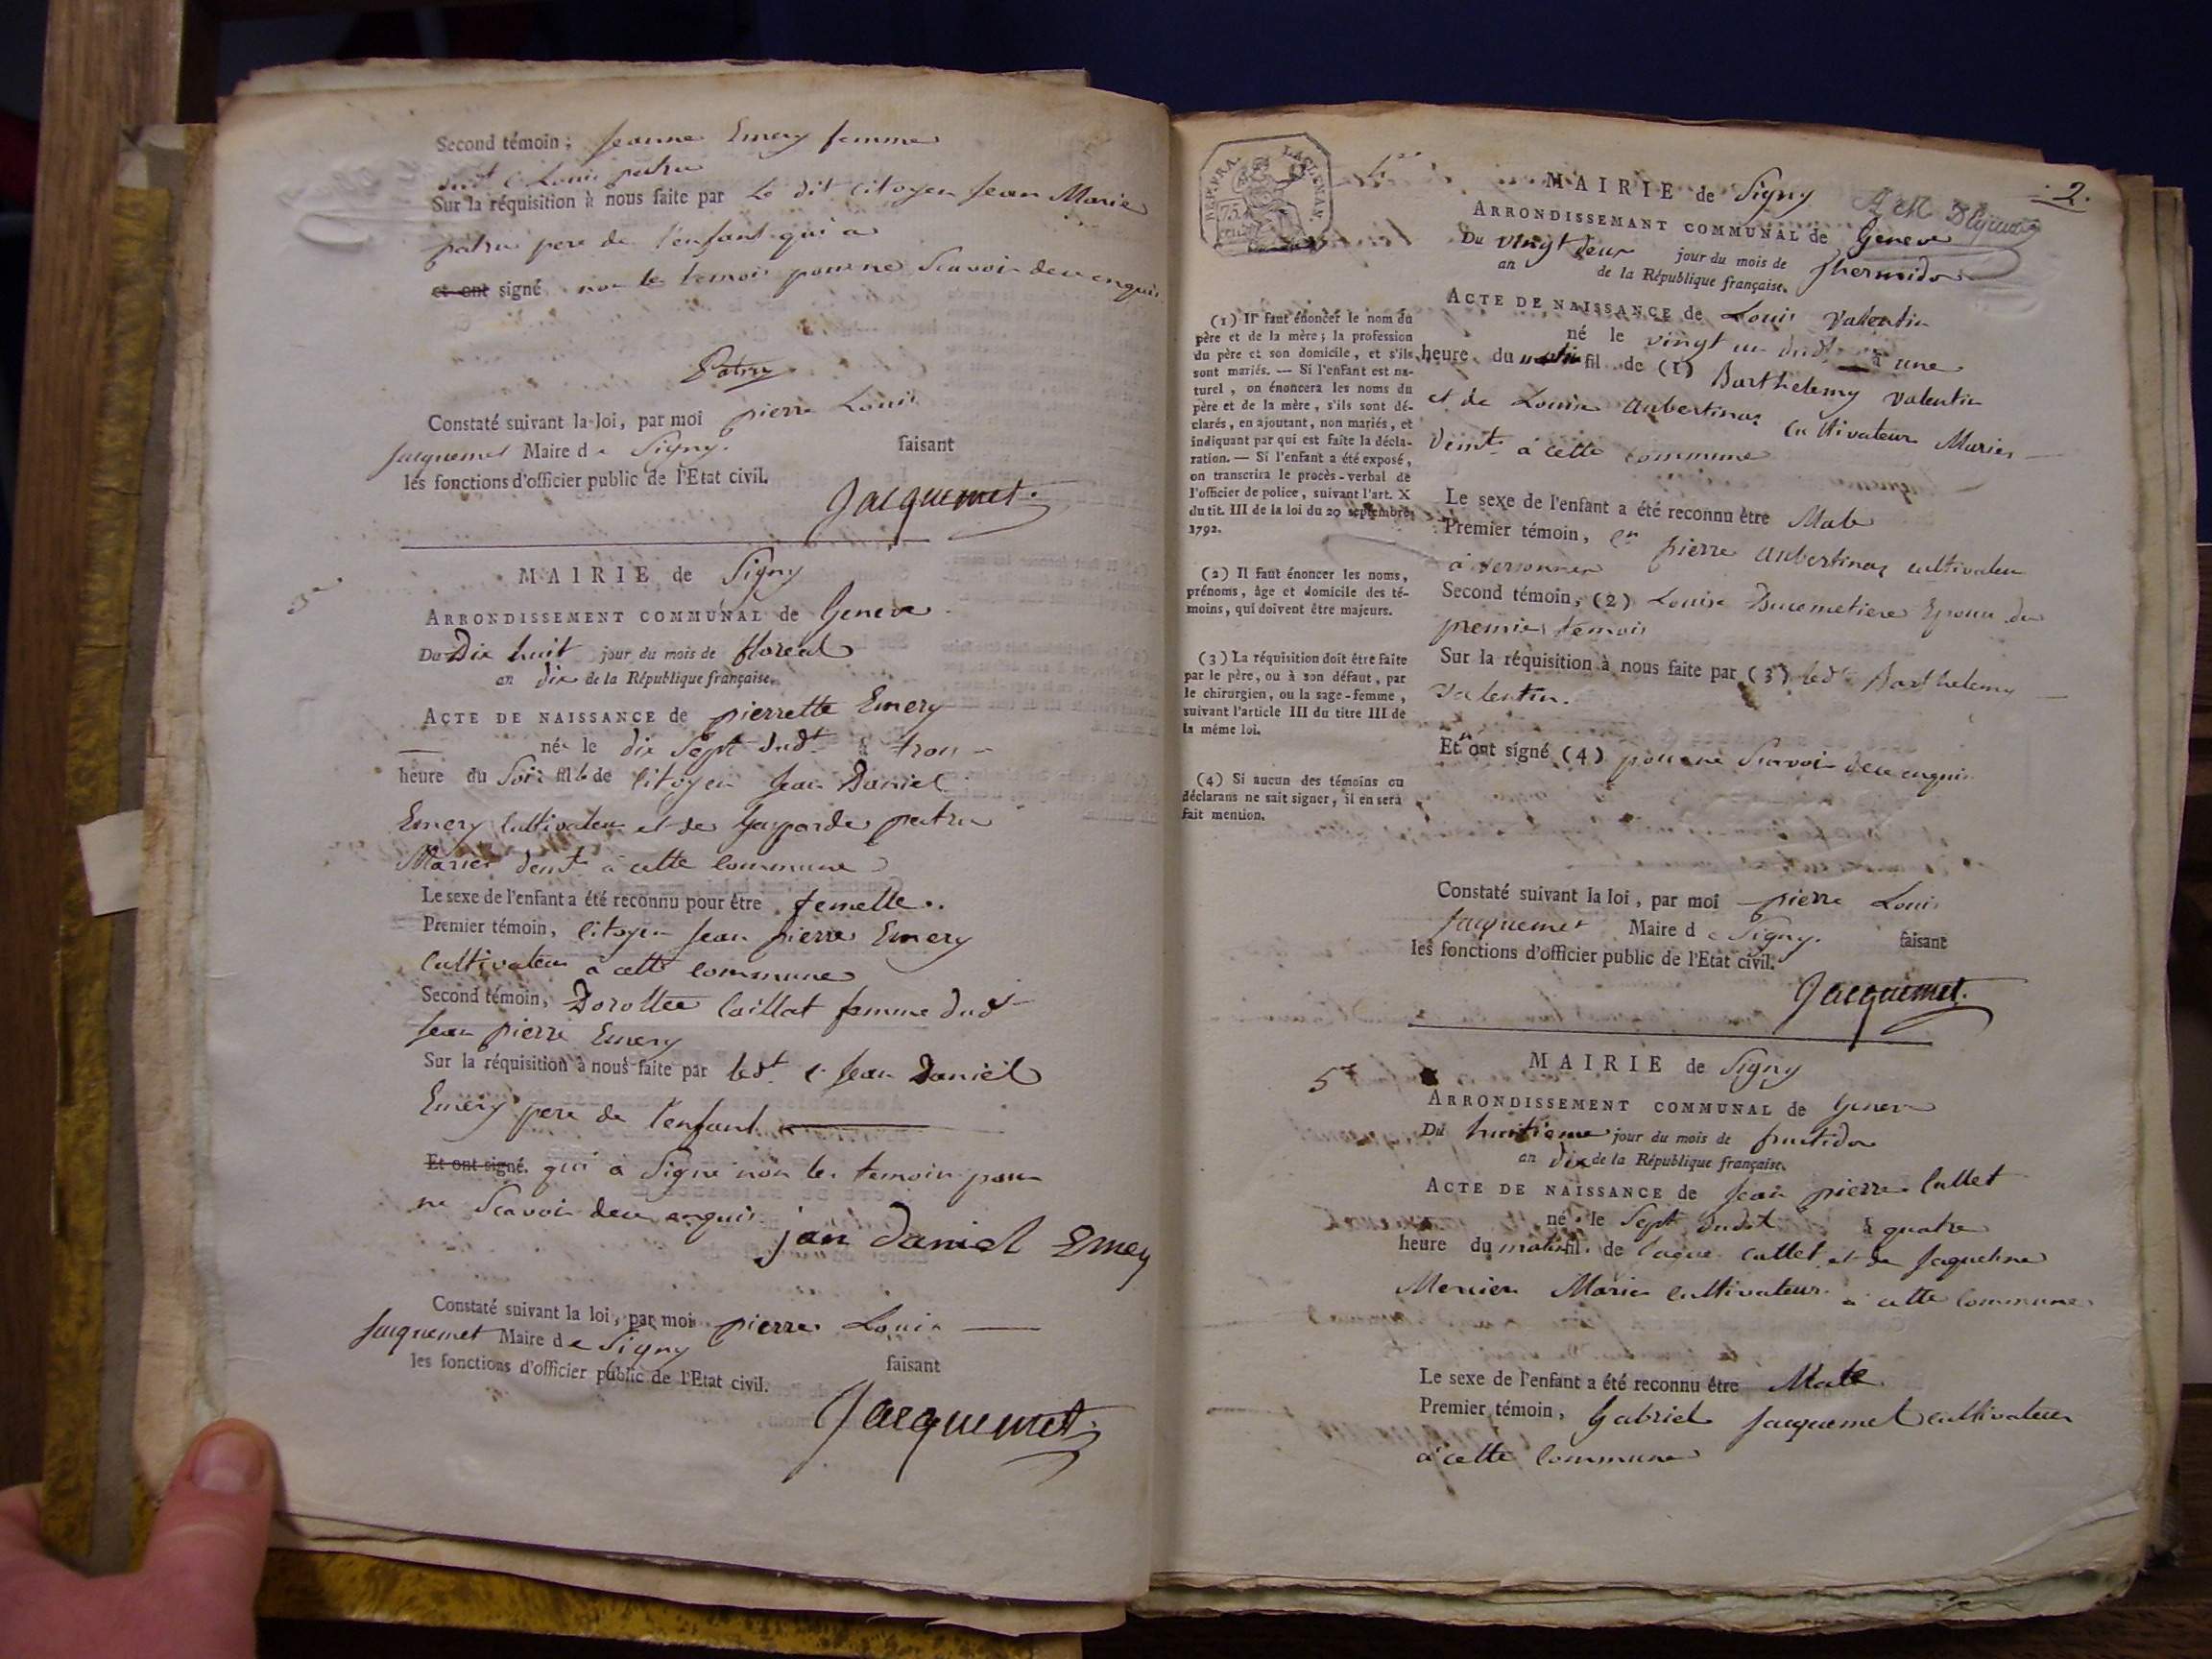 Second témoin; Jeanne Emery femme
dudt c. Louis patru
Sur la réquisition à nous faite par Le dit citoyen Jean Marie
patru pere de l'enfant qui a
et ont signé non les temoin pour ne Scavoir dece enquis
Patru
Constaté suivant la loi, par moi pierre Louis
Jacquemet Maire de Signy. faisant
les fonctions d'officier public de l'Etat civil.
Jacquemet.
3e
MAIRIE de Signy
ARRONDISSEMENT COMMUNAL de Geneve
Du Dix huit jour du mois de floreal
an dix de la République française.
ACTE DE NAISSANCE de pierrette Emery
née le dix Sept dudt à trois
heure du Soir fille de citoyen Jean Daniel
Emery Cultivateur et de Gasparde patru
Mariés demt à cette commune
Le sexe de l'enfant a été reconnu pour être femelle..
Premier témoin, citoyen Jean pierre Emery
Cultivateur à cette commune
Second témoin, Dorothee Caillat femme dudt
Jean pierre Emery
Sur la réquisition à nous faite par ledt c. Jean Daniel
Emery pere de l'enfant
Et ont signé. qui a Signé non les temoin pour
ne Scavoir dece enquis
jan daniel Emery
Constaté suivant la loi, par moi pierre Louis
Jacquemet Maire de Signy
faisant
les fonctions d'officier public de l'Etat civil.
Jacquemet
2.
MAIRIE de Signy
ARRONDISSEMANT COMMUNAL de Geneve
Du vingt deux jour du mois de thermidor
an de la République française.
ACTE DE NAISSANCE de Louis Valentin
né le vingt un dudt à une
heure du matin fil de (1) Barthelemy Valentin
et de Louise Aubertinaz Cultivateurs Mariés
demt à cette commune
Le sexe de l'enfant a été reconnu être Male
Premier témoin, cen pierre Aubertinaz cultivateur
à versonnex
Second témoin, (2) Louise Ducemetiere Epouse du
premier temoin
Sur la réquisition à nous faite par (3) ledt Barthelemy
Valentin.
Et ont signé (4) pour ne Scavoir dece enquis
(1) Il faut énoncer le nom du
père et de la mère; la profession
du père et son domicile, et s'ils
sont mariés. — Si l'enfant est na-
turel, on énoncera les noms du
père et de la mère, s'ils sont dé-
clarés, en ajoutant, non mariés, et
indiquant par qui est faite la décla-
ration. — Si l'enfant a été exposé,
on transcrira le procès-verbal de
l'officier de police, suivant l'art. X
du tit. III de la loi du 20 septembre
1792.
(2) Il faut énoncer les noms,
prénoms, âge et domicile des té-
moins, qui doivent être majeurs.
(3) La réquisition doit être faite
par le père, ou à son défaut, par
le chirurgien, ou la sage-femme,
suivant l'article III du titre III de
la même loi.
(4) Si aucun des témoins ou
déclarans ne sait signer, il en sera
fait mention.
Constaté suivant la loi, par moi pierre Louis
Jacquemet Maire de Signy. faisant
les fonctions d'officier public de l'Etat civil.
Jacquemet.
5e
MAIRIE de Signy
ARRONDISSEMENT COMMUNAL de Geneve
Du huitieme jour du mois de fructidor
an dix de la République française.
ACTE DE NAISSANCE de Jean pierre Cullet
né le Sept dudit à quatre
heure du matin fil de Cullet et de Jaqueline
Mercier Mariés cultivateurs à cette commune
Le sexe de l'enfant a été reconnu être Male
Premier témoin, Gabriel Jacquemet cultivateur
à cette commune